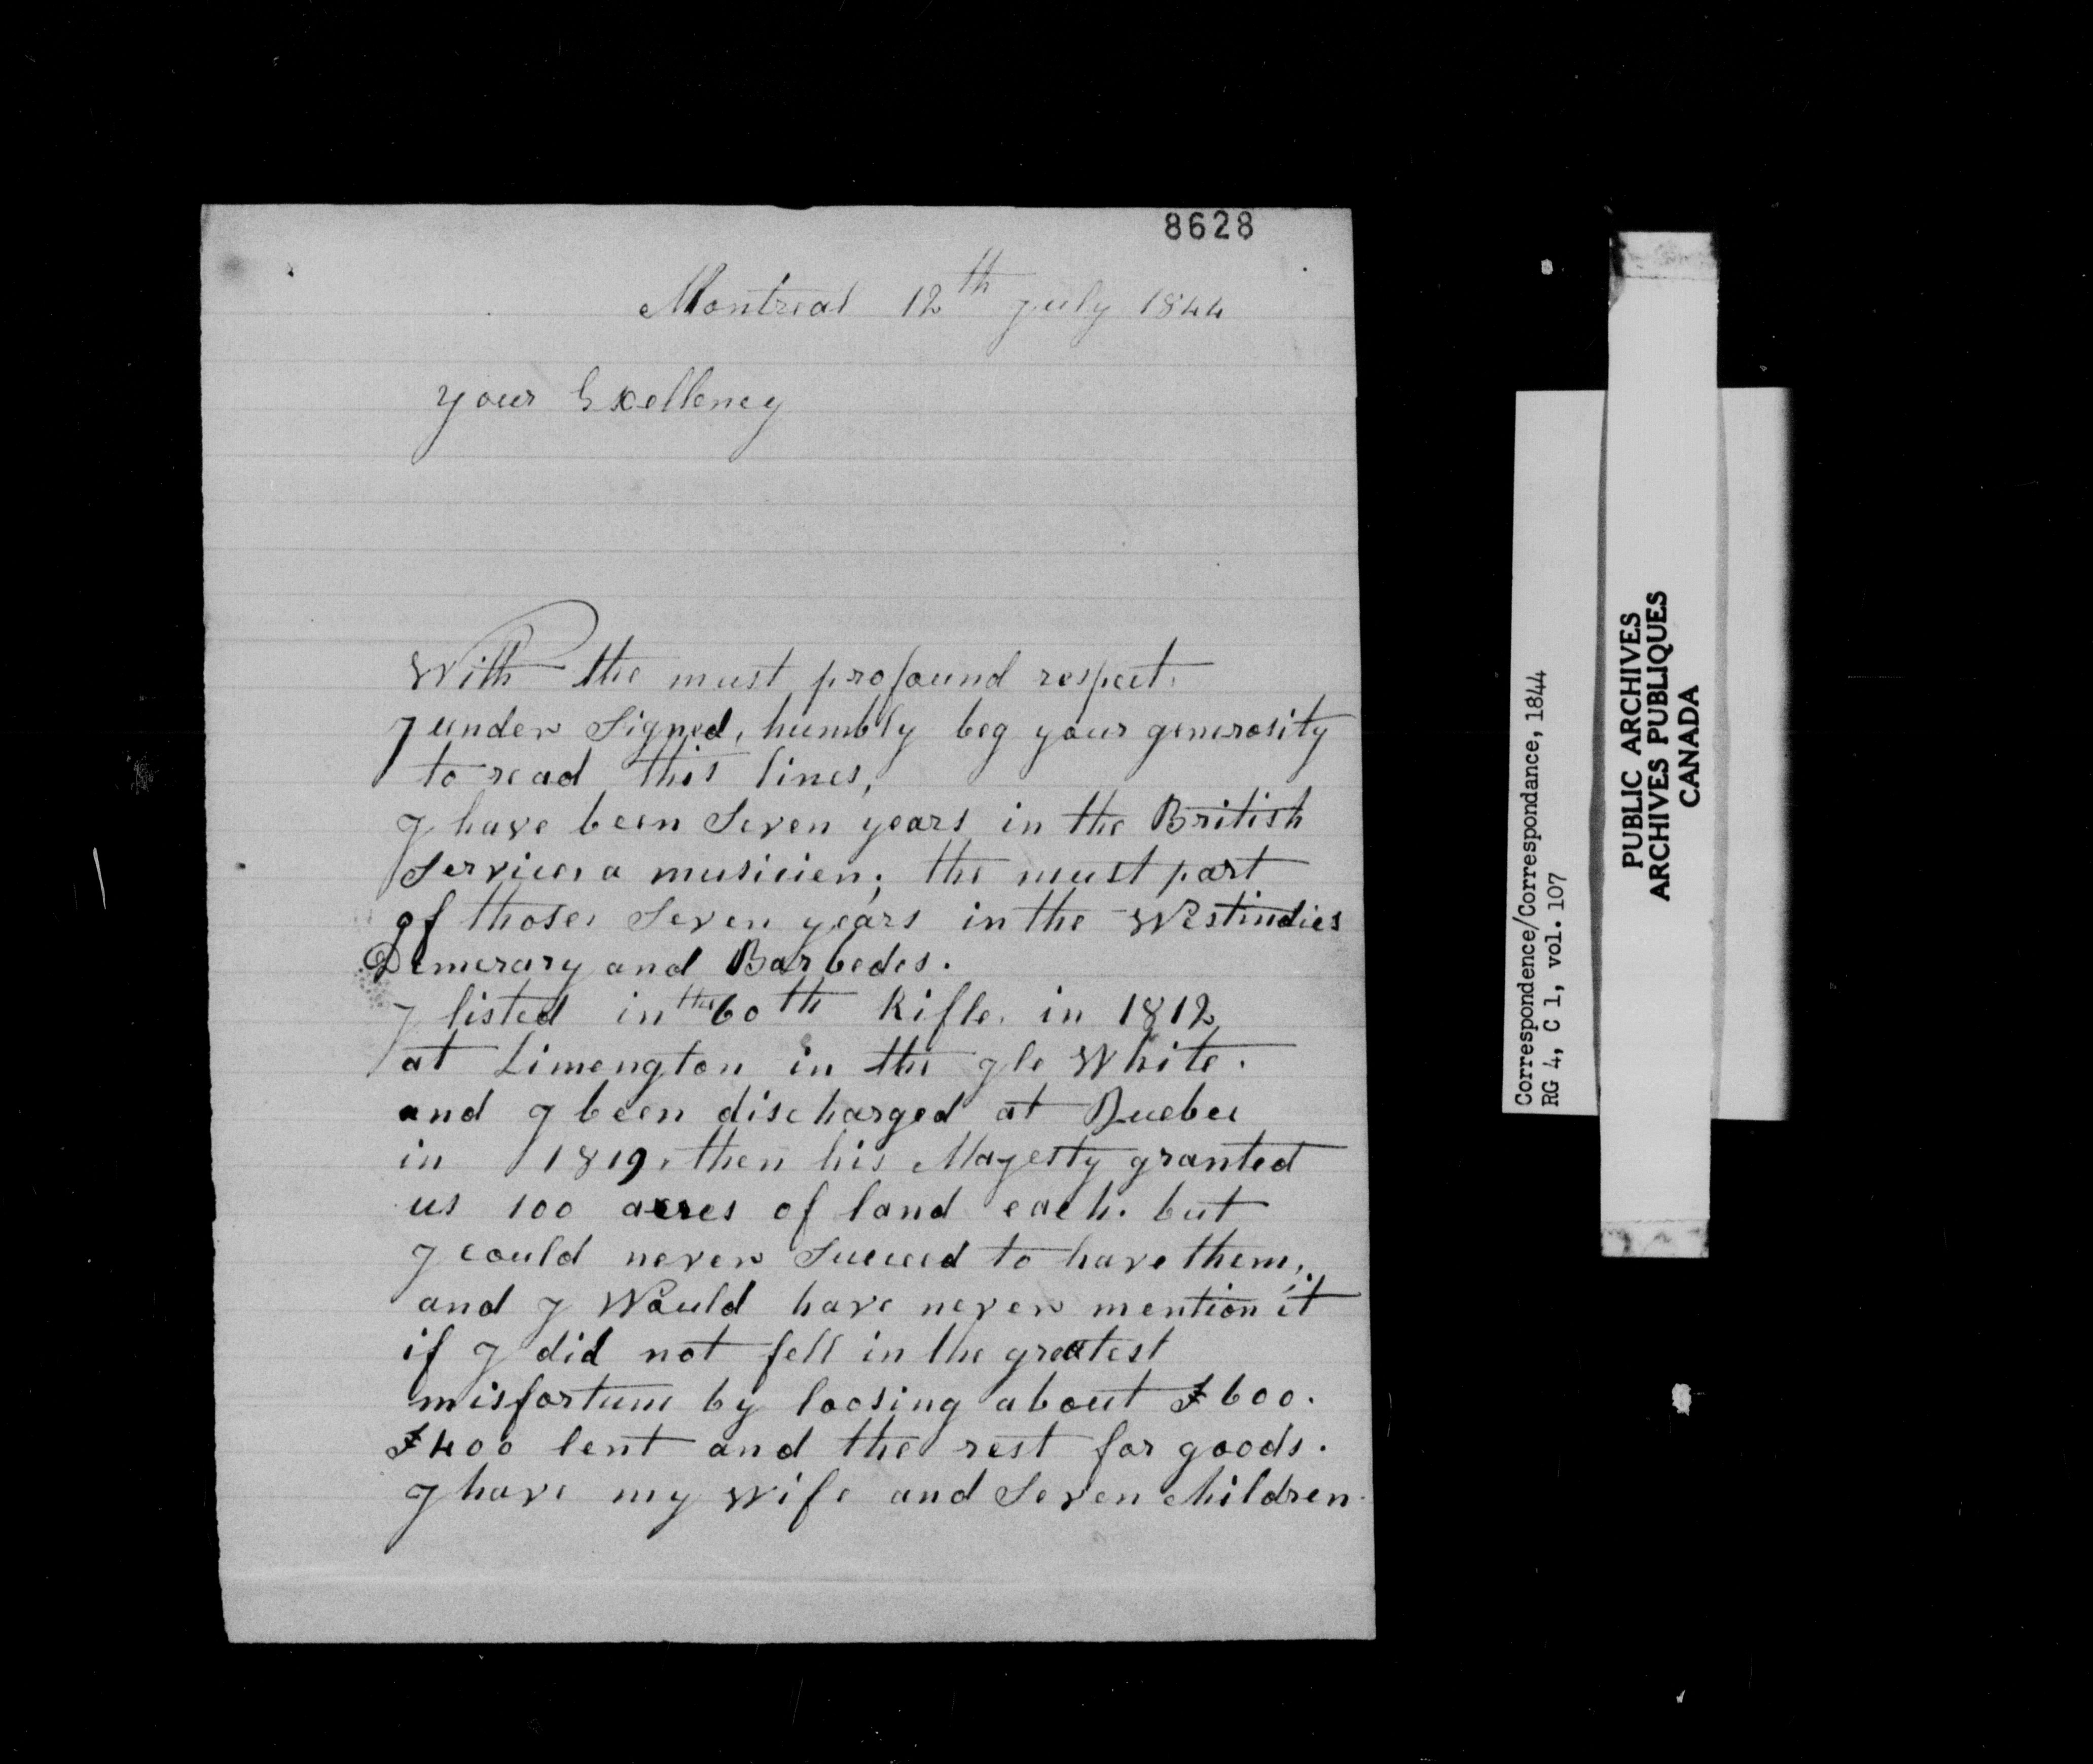 8628
Montreal 12th July 1844
your Exellency
With the must profound respect.
I under Signed, humbly beg your generosity
to read this lines,
I have been Seven years in the British
Service, a musicien; the must part
of those Seven years in the Westindies
Demerary and Barbedes.
I listed in the 60th Rifle. in 1812
at Limengton in the Ile White.
and I been discharged at Quebec
in 1819, then his Majesty granted
us 100 acres of land each. but
I could never Succeed to have them,
and I Would have never mention it
if I did not fell in the greatest
misfortune by loosing about £600.
£400 lent and the rest for goods.
I have my wife and Seven children.
Correspondence/Correspondance, 1844
RG 4, C 1, vol. 107
PUBLIC ARCHIVES
ARCHIVES PUBLIQUES
CANADA